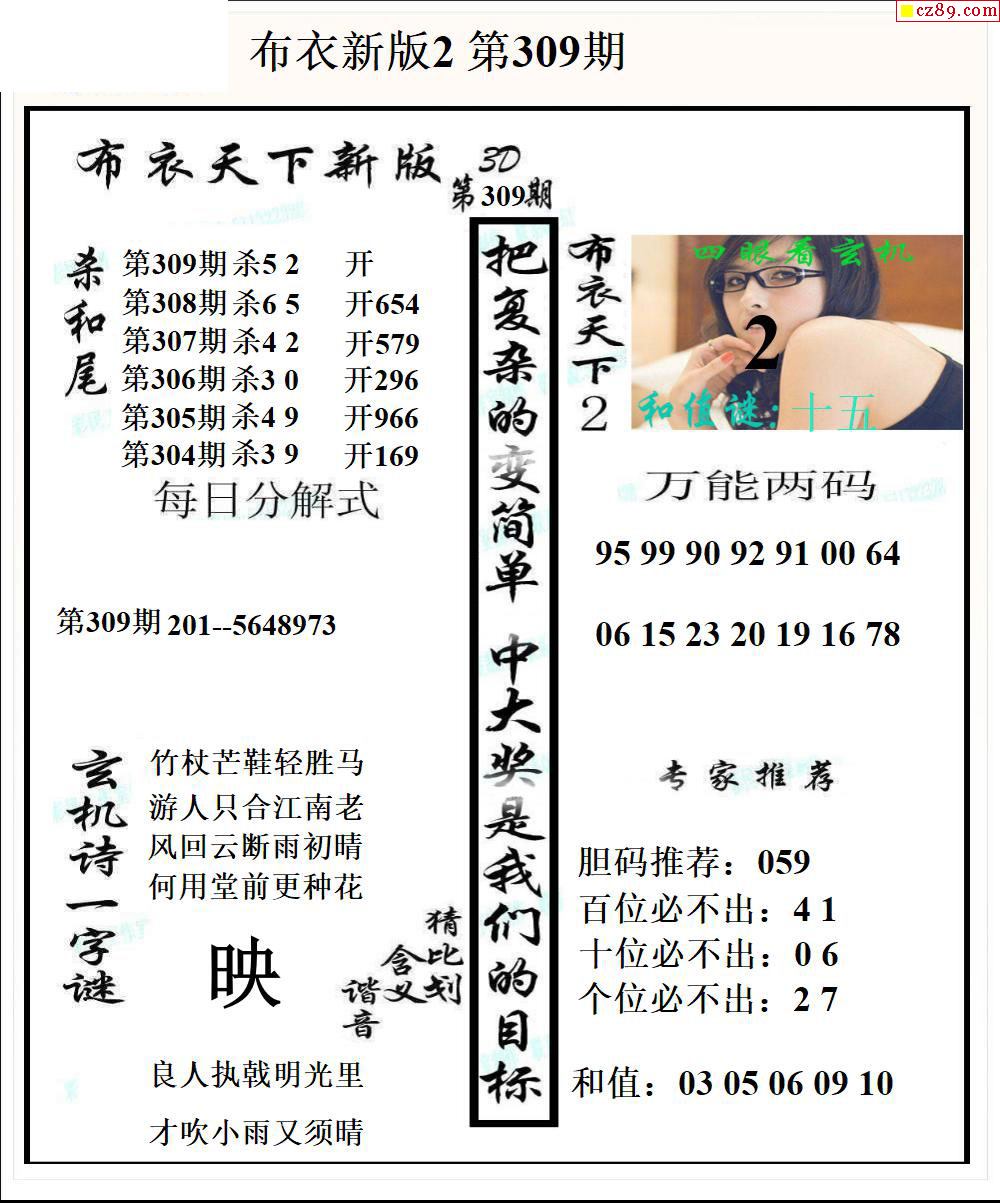 cz89.com
布衣新版2 第309期
布衣天下新版 3D
第309期
杀和尾
第309期 杀5 2 开
第308期 杀6 5 开654
第307期 杀4 2 开579
第306期 杀3 0 开296
第305期 杀4 9 开966
第304期 杀3 9 开169
每日分解式
第309期 201--5648973
玄机诗一字谜
竹杖芒鞋轻胜马
游人只合江南老
风回云断雨初晴
何用堂前更种花
映
猜比划
含义
谐音
良人执戟明光里
才吹小雨又须晴
把复杂的变简单 中大奖是我们的目标
布衣天下2
四眼看玄机
2
和值谜:十五
万能两码
95 99 90 92 91 00 64
06 15 23 20 19 16 78
专家推荐
胆码推荐：059
百位必不出：4 1
十位必不出：0 6
个位必不出：2 7
和值：03 05 06 09 10